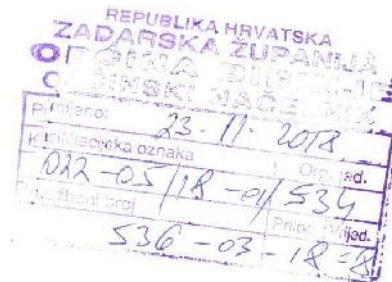 REPUBLIKA HRVATSKA
ZADARSKA ŽUPANIJA
OPĆINA
OPĆINSKI NAČELNIK
Primljeno:
23-11-2018
Klasifikacijska oznaka Org. jed.
022-05/18-01/534
broj
536-03-18-8